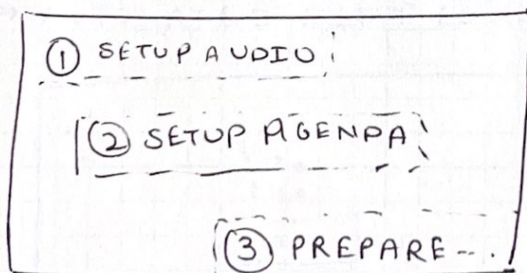 ① SETUP AUDIO
② SETUP AGENDA
③ PREPARE...